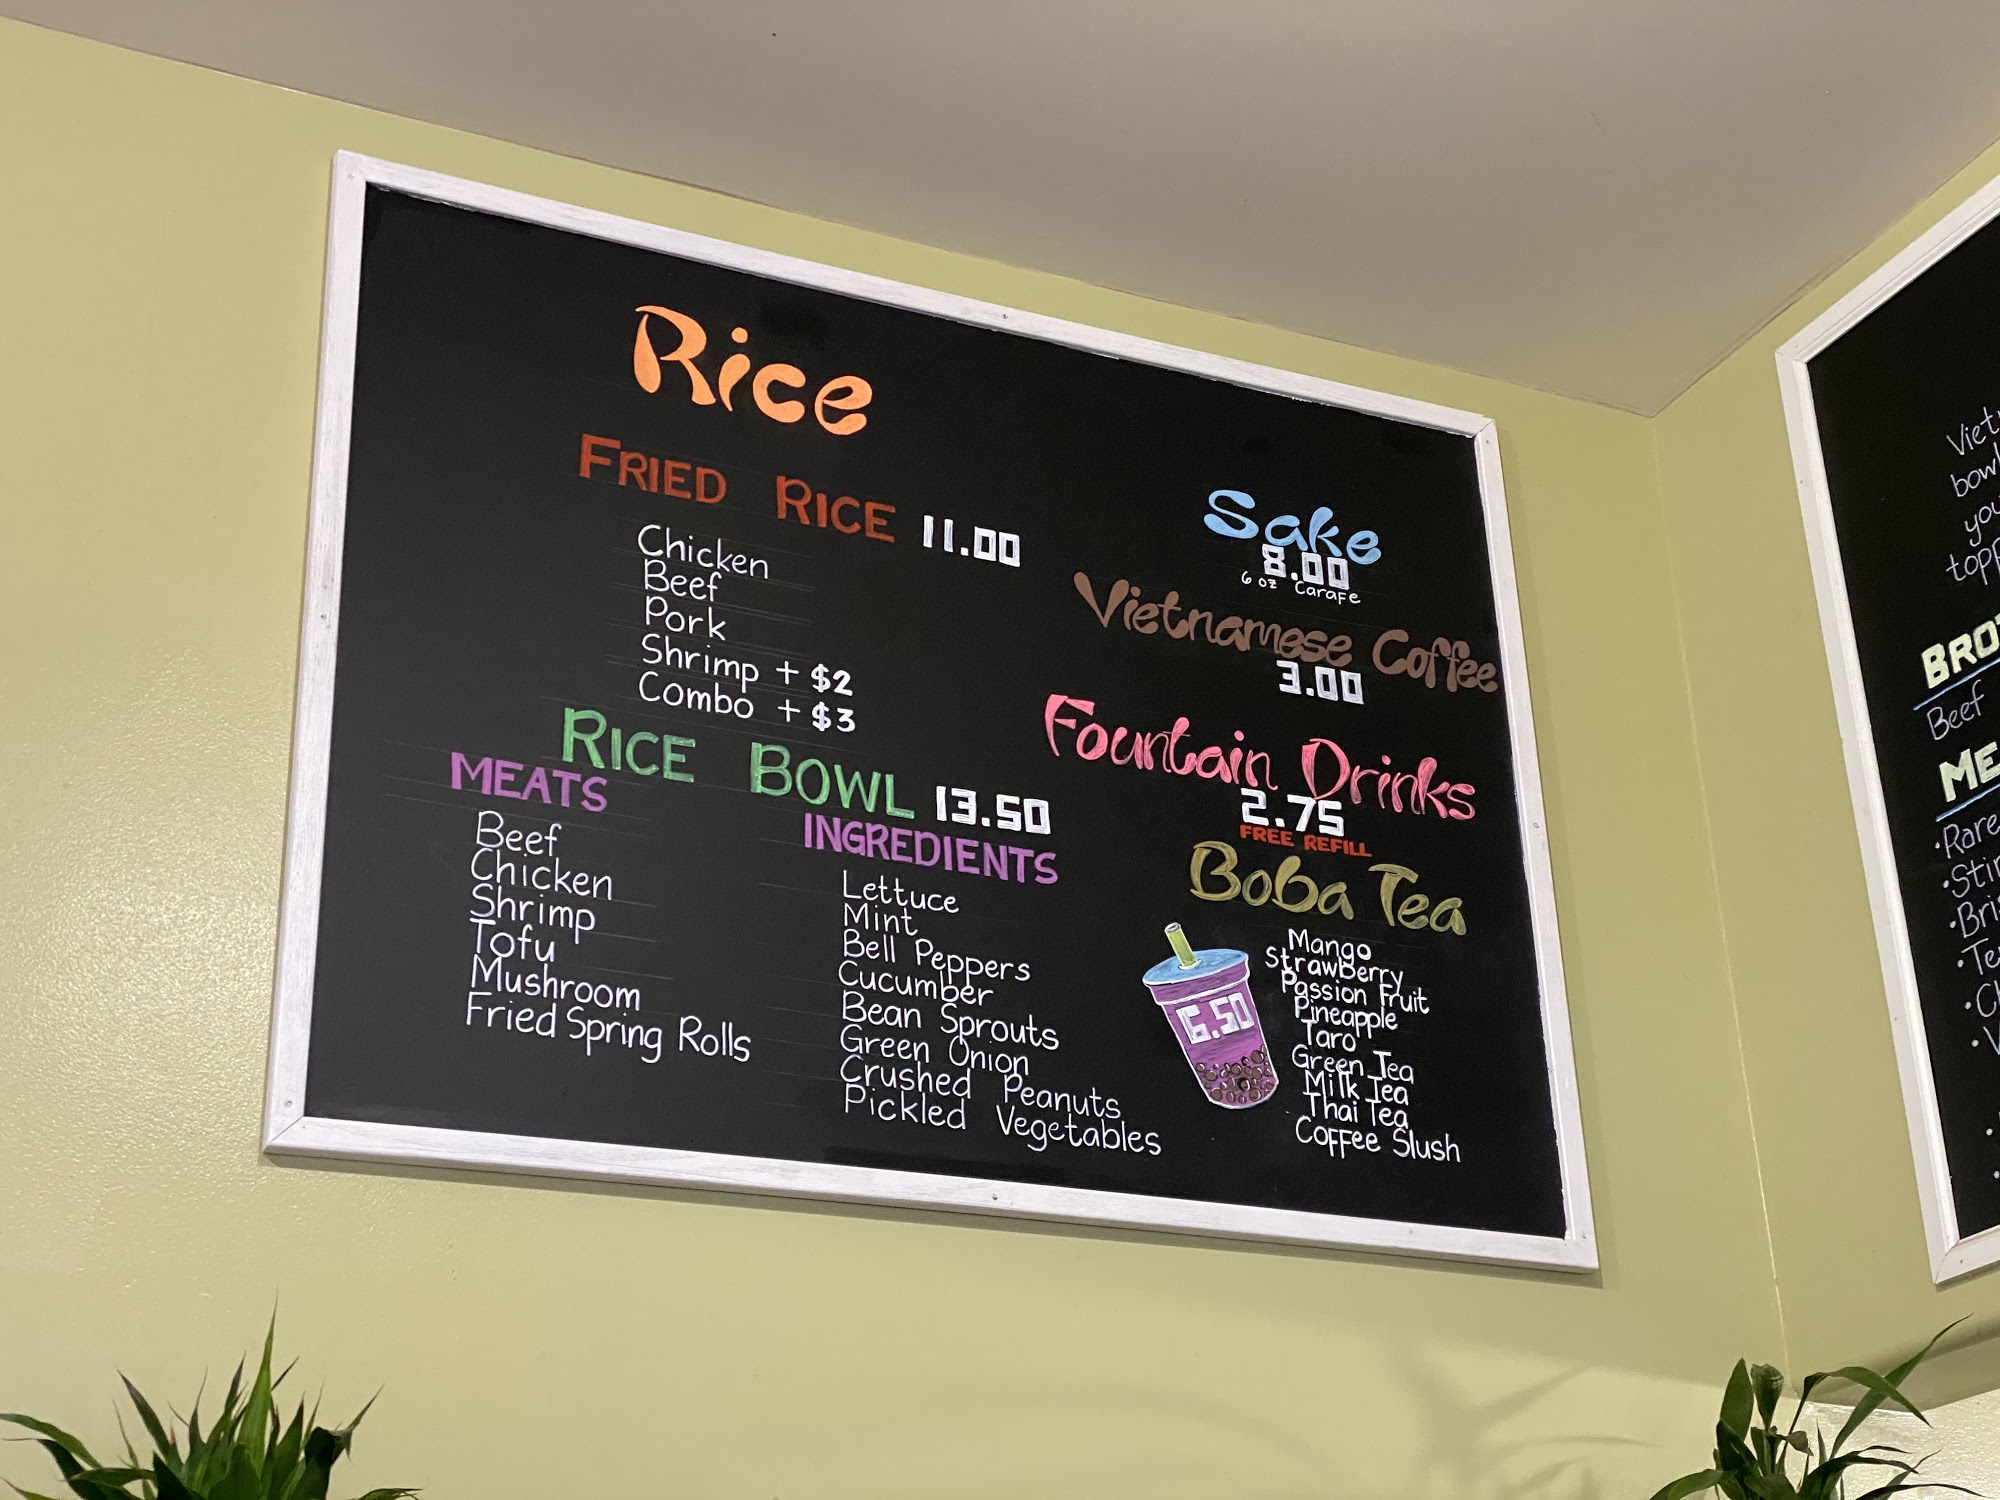 Rice
FRIED RICE 11.00
Chicken
Beef
Pork
Shrimp + $2
Combo + $3
RICE BOWL 13.50
MEATS
Beef
Chicken
Shrimp
Tofu
Mushroom
Fried Spring Rolls
INGREDIENTS
Lettuce
Mint
Bell Peppers
Cucumber
Bean Sprouts
Green Onion
Crushed Peanuts
Pickled Vegetables
Sake
8.00
6 oz Carafe
Vietnamese Coffee
3.00
Fountain Drinks
2.75
FREE REFILL
Boba Tea
6.50
Mango
Strawberry
Passion Fruit
Pineapple
Taro
Green Tea
Milk Tea
Thai Tea
Coffee Slush
Beef